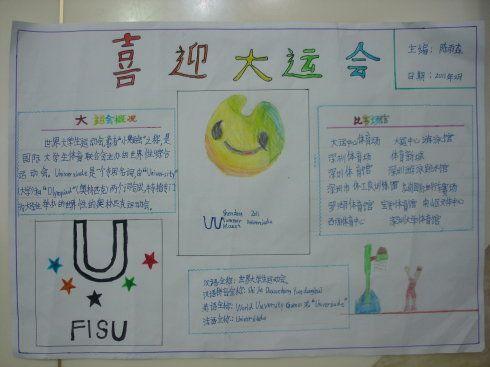 喜迎大运会
主编：陈雨森
日期：2011年3月
大运会概况
世界大学生运动会，素有"小奥运会"之称，是
国际大学生体育联合会主办的世界性综合
运动会。Universiade是个专用名词，由"University"
大学和"Olympiad"(奥林匹克)两个词组成，特指专门
为大学生举办的世界性的奥林匹克运动会。
U
FISU
Shenzhen 2011
Summer Universiade
比赛场馆
大运中心体育场 大运中心游泳馆
深圳体育场 体育新城
深圳体育馆 深圳游泳跳水馆
深圳市体工队训练馆
罗湖体育馆 宝安体育馆 南山区文体中心
西涌体育中心 深圳大学体育馆
汉语全称：世界大学生运动会
汉语拼音全称：Shi Jie Daxuesheng Yundonghui
英语全称：World University Games 或 "Universiade"
法语全称：Universiade